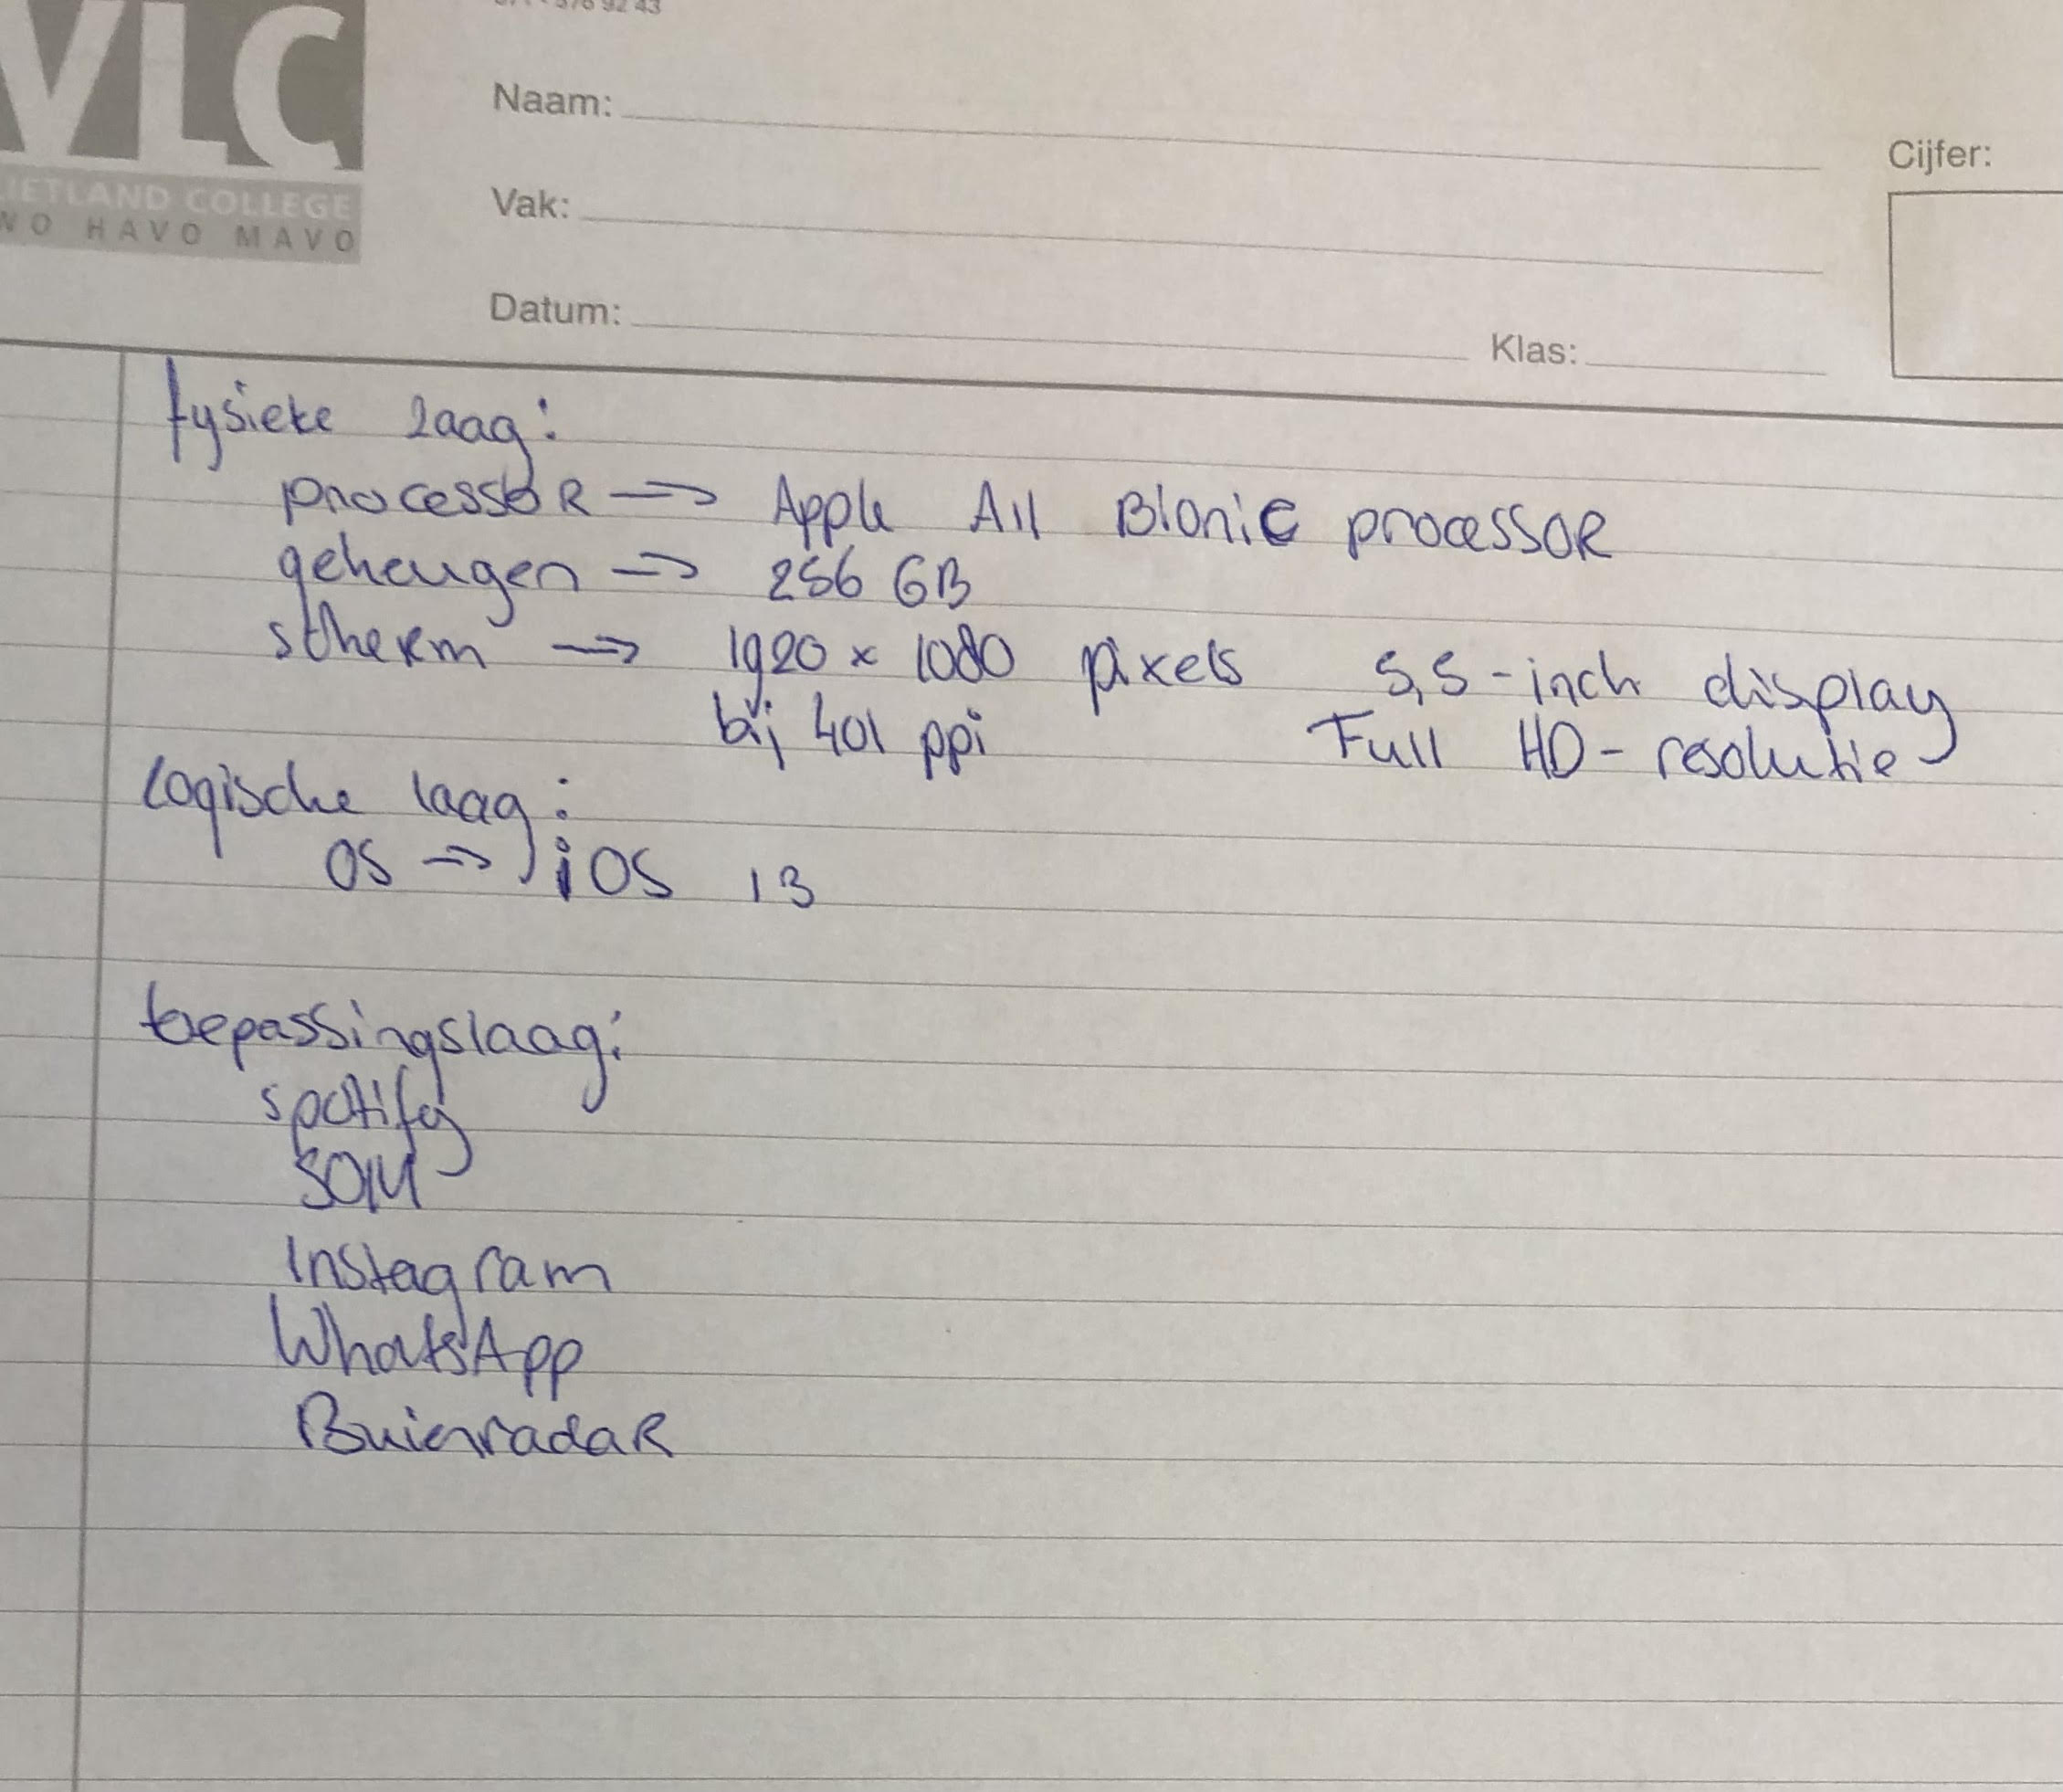 VLC
IETLAND COLLEGE
WO HAVO MAVO
Naam:
Cijfer:
Vak:
Datum:
Klas:
fysieke laag:
processor => Apple A11 Bionic processor
geheugen => 256 GB
scherm => 1920 x 1080 pixels 5,5-inch display
bij 401 ppi Full HD-resolutie
logische laag:
OS => iOS 13
toepassingslaag:
spotify
SOM
Instagram
WhatsApp
Buienradar